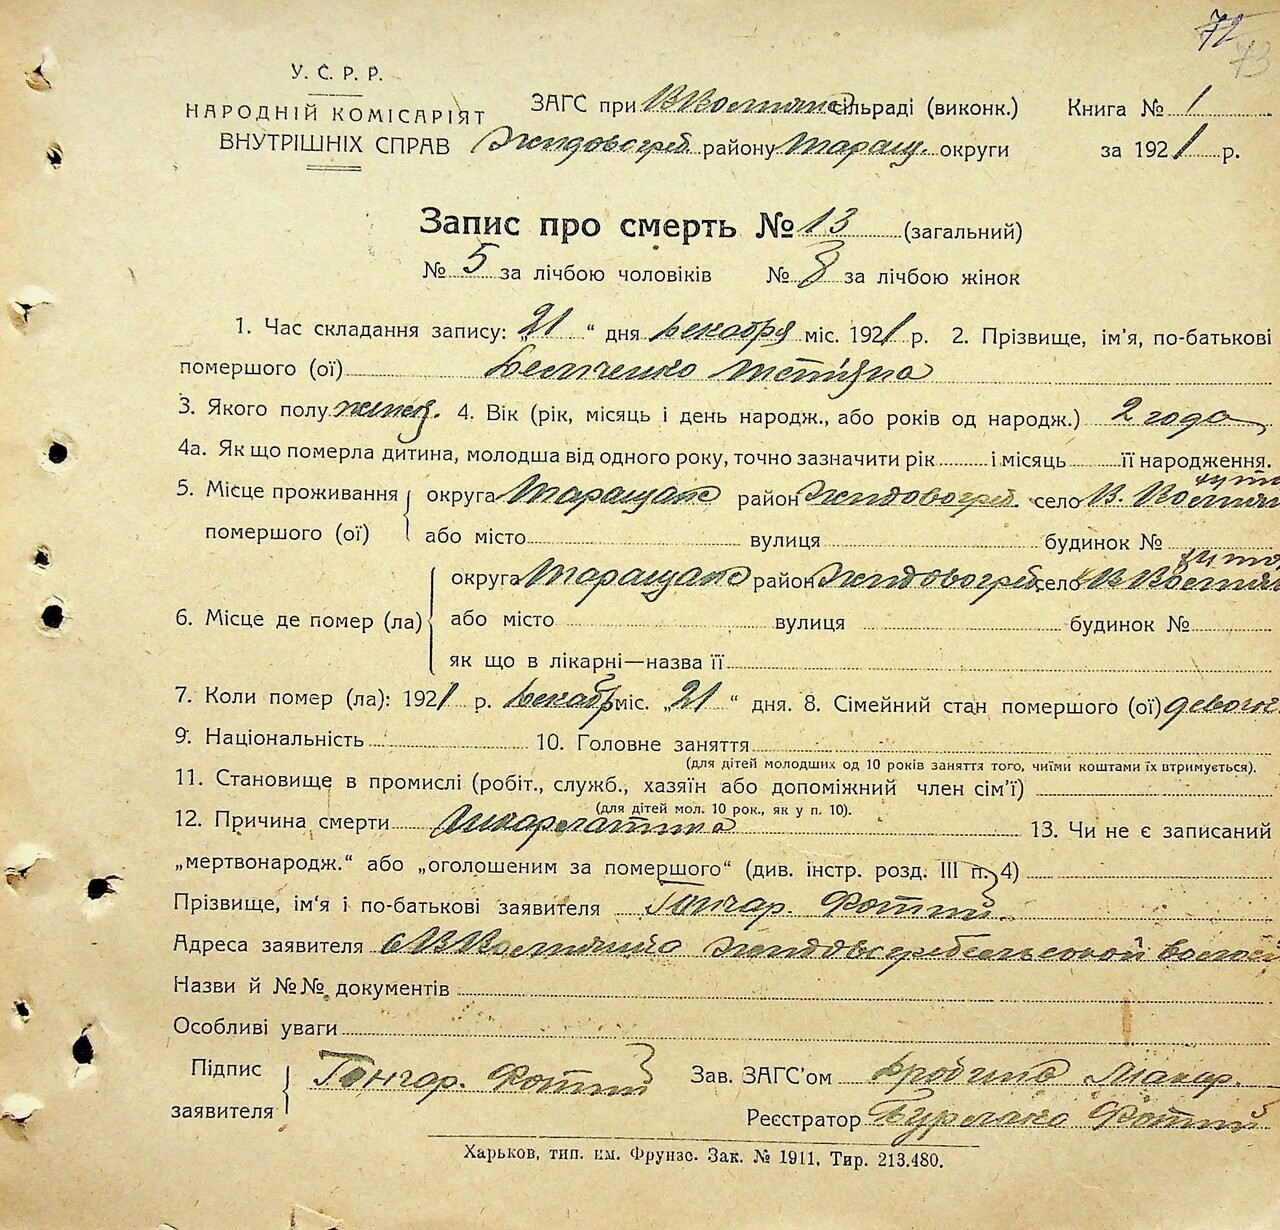 72
73
У. С. Р. Р.
НАРОДНІЙ КОМІСАРІЯТ
ВНУТРІШНІХ СПРАВ
ЗАГС при сільраді (виконк.)
району Таращ. округи
Книга № 1
за 1921 р.
Запис про смерть № 13 (загальний)
№ 5 за лічбою чоловіків № 8 за лічбою жінок
1. Час складання запису: „21“ дня декабря міс. 1921 р. 2. Прізвище, ім'я, по-батькові
помершого (ої)
3. Якого полу женск. 4. Вік (рік, місяць і день народж., або років од народж.) 2 года
4а. Як що померла дитина, молодша від одного року, точно зазначити рік і місяць її народження.
5. Місце проживання помершого (ої) округа Таращанс район село В.
або місто вулиця будинок №
6. Місце де помер (ла) округа Таращанс район село В
або місто вулиця будинок №
як що в лікарні—назва її
7. Коли помер (ла): 1921 р. декабр міс. „21“ дня. 8. Сімейний стан помершого (ої)
9. Національність 10. Головне заняття
(для дітей молодших од 10 років заняття того, чиїми коштами їх втримується).
11. Становище в промислі (робіт., служб., хазяїн або допоміжний член сім'ї)
(для дітей мол. 10 рок., як у п. 10).
12. Причина смерти Шкарлатина 13. Чи не є записаний
„мертвонародж.“ або „оголошеним за помершого“ (див. інстр. розд. III п. 4)
Прізвище, ім'я і по-батькові заявителя Гончар. Фотий
Адреса заявителя
Назви й №№ документів
Особливі уваги
Підпис заявителя Гончар. Фотий
Зав. ЗАГС'ом Макар.
Реєстратор Бурлака Фотий
Харьков, тип. им. Фрунзе. Зак. № 1911, Тир. 213.480.